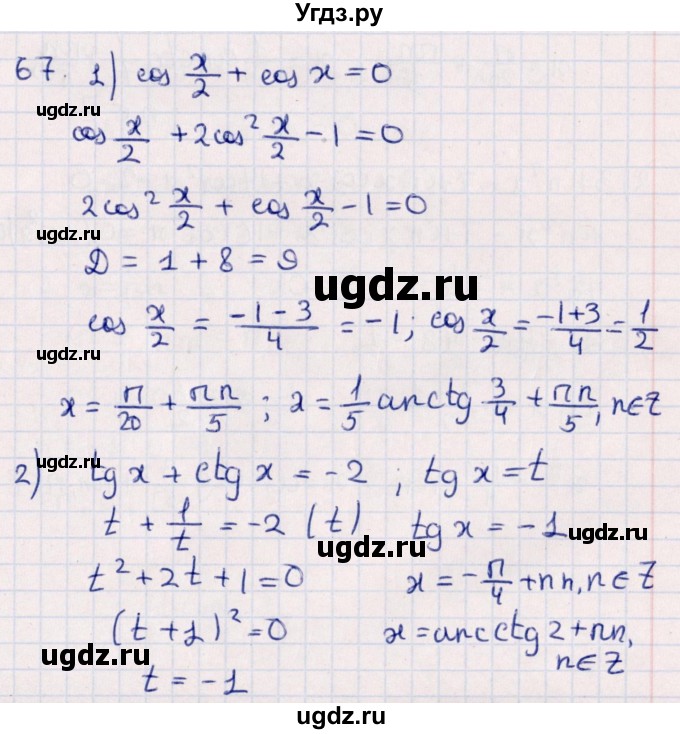 Угдз.ру
67. 1) cos x/2 + cos x = 0
ugdz.ru
cos x/2 + 2cos² x/2 - 1 = 0
ugdz.ru
2cos² x/2 + cos x/2 - 1 = 0
ugdz.ru
D = 1 + 8 = 9
ugdz.ru
cos x/2 = (-1-3)/4 = -1; cos x/2 = (-1+3)/4 = 1/2
ugdz.ru
x = π/20 + πn/5 ; x = 1/5 arctg 3/4 + πn/5, n∈Z
ugdz.ru
2) tg x + ctg x = -2 ; tg x = t
ugdz.ru
t + 1/t = -2 (t) tg x = -1
ugdz.ru
ugdz.ru
t² + 2t + 1 = 0 x = -π/4 + πn, n∈Z
(t+1)² = 0 x = arcctg 2 + πn,
n∈Z
ugdz.ru
ugdz.ru
t = -1
ugdz.ru